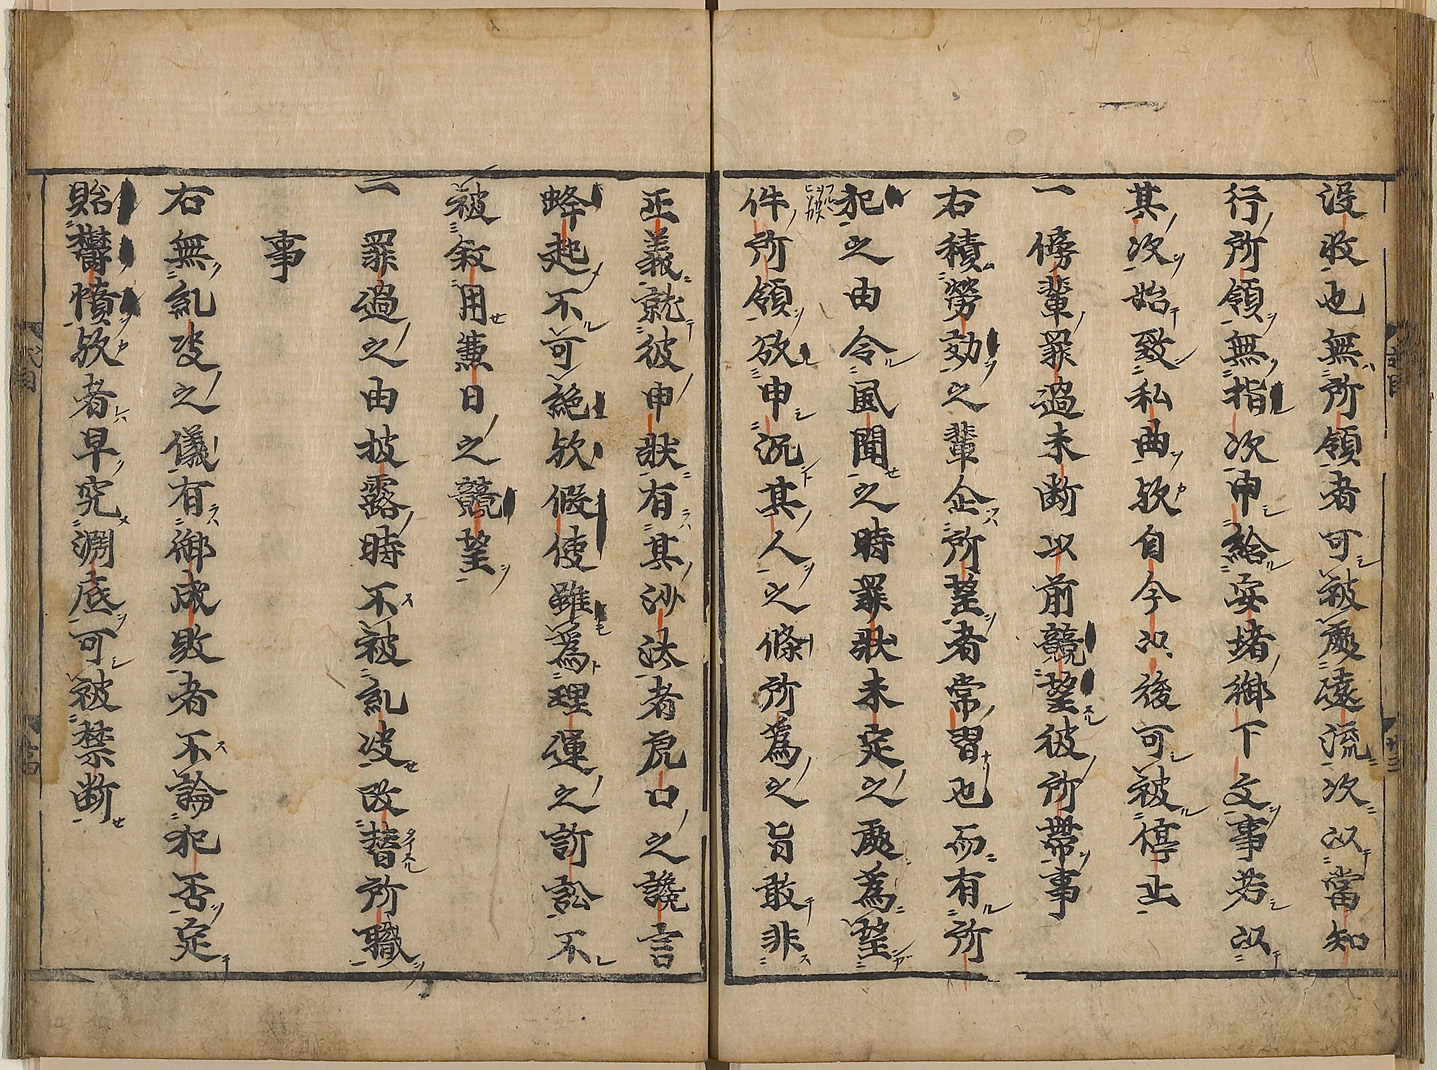 没収也無所領者可被處遠流次以當知
行所領無指次申給安堵御下文事若以
其次始致私曲歟自今以後可被停止
一 傍輩罪過未断以前競望彼所帯事
右積勞効之輩企所望者常習也而有所
犯之由令風聞之時罪状未定之處為望
件所領欲申沉其人之條所為之旨敢非
正義就彼申状有其沙汰者虎口之讒言
蜂起不可絶歟假使雖為理運之訴訟不
被敘用兼日之競望
一 罪過之由披露時不被糺决改替所職
事
右無糺决之儀有御成敗者不論犯否定
貽欝憤歟者早究淵底可被禁断